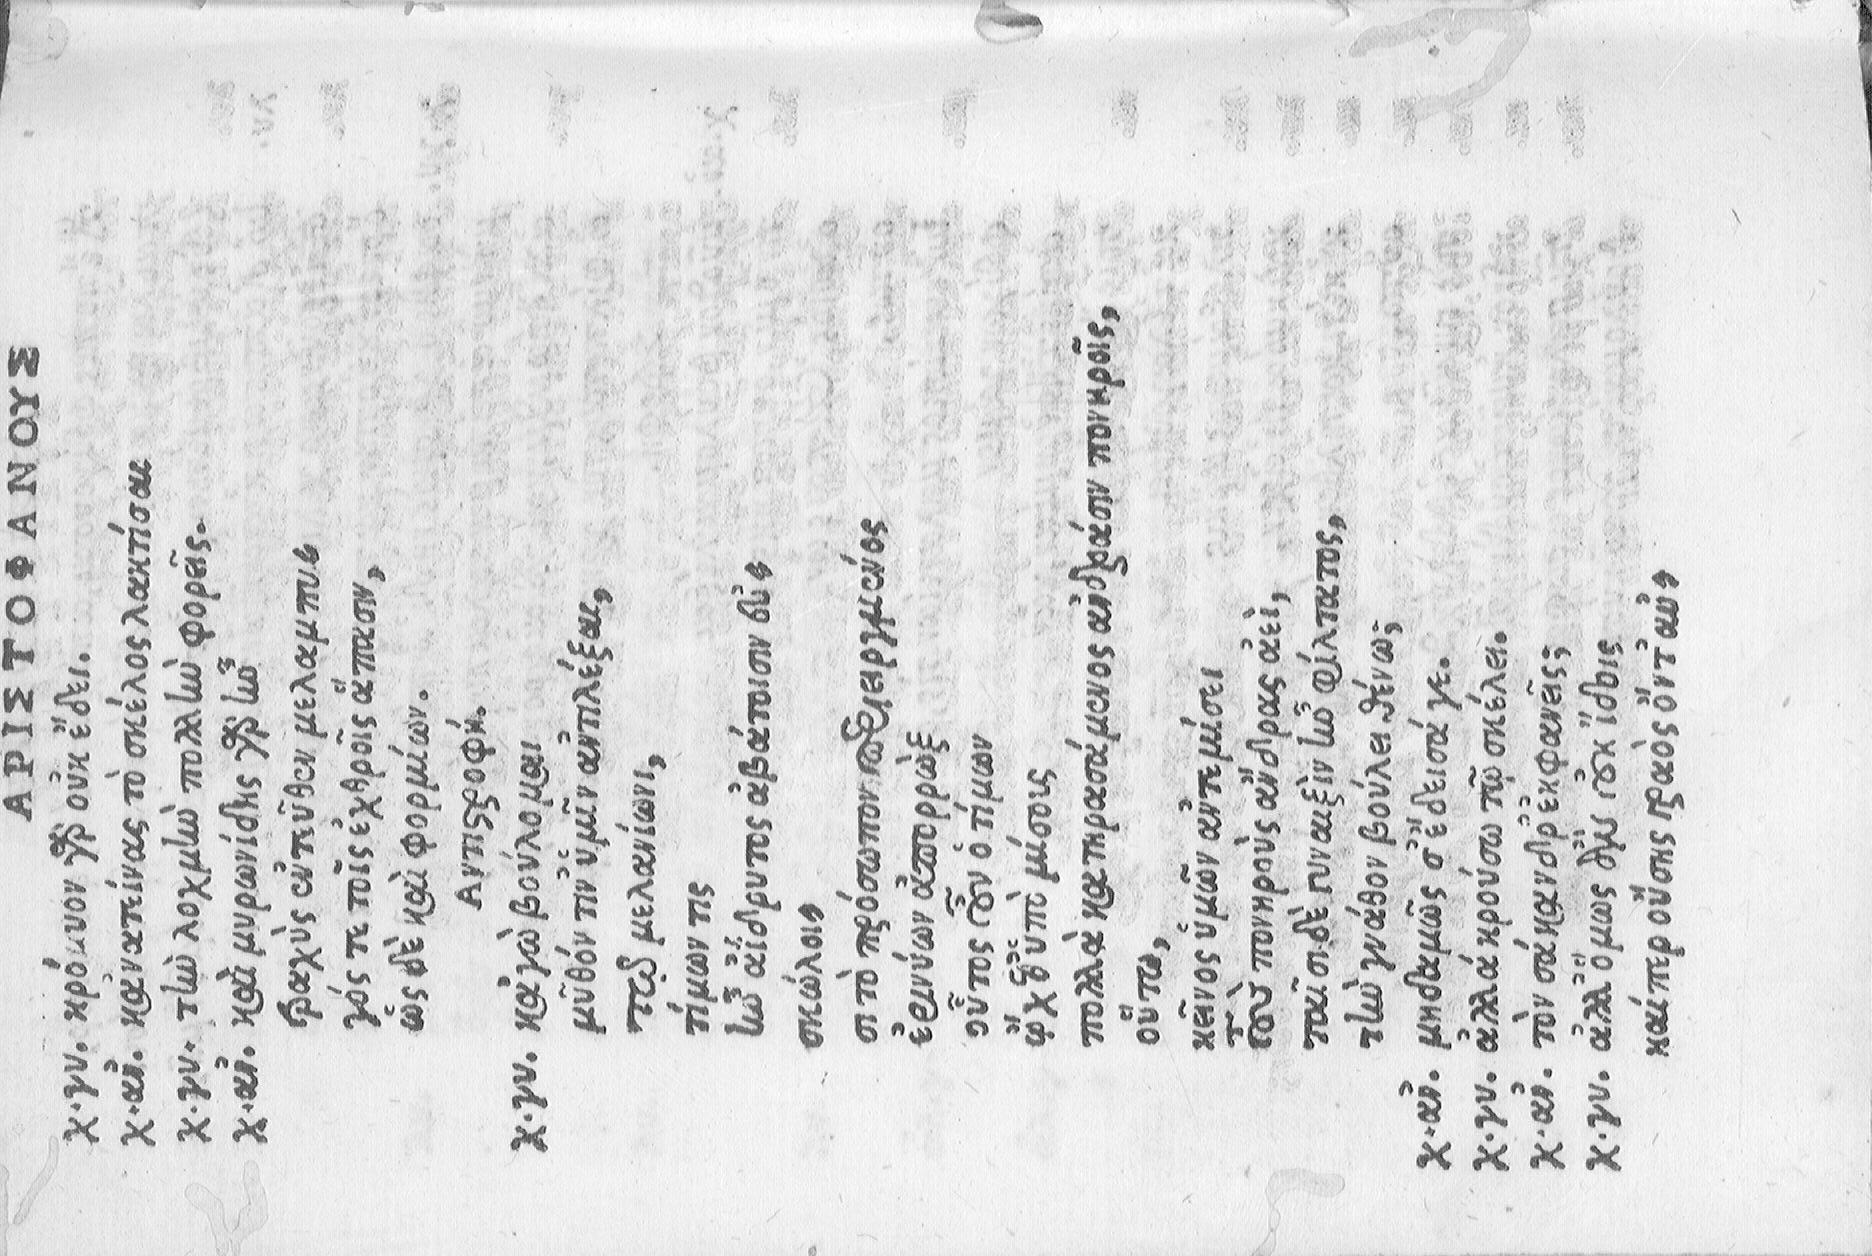 ΑΡΙΣΤΟΦΑΝΟΥΣ
χ·γυ. κρόμυον γὰρ οὐκ ἔδει.
χ·ἀν. κᾀνατείνας τὸ σκέλος λακτίσαι
χ·γυ. τὴν λοχμὴν πολλὴν φορεῖς.
χ·ἀν. καὶ μυρωνίδης γὰρ ἦν
τραχὺς ἐντεῦθεν μελαμπυ
γός τε τοῖς ἐχθροῖς ἅπασιν,
ὣς δὲ καὶ φορμίων.
Αντιστροφή.
χ·γυ. κᾀγὼ βούλομαι
μῦθόν τιν' ὑμῖν ἀντιλέξαι,
τῷ μελανίωνι,
τίμων τις
ἦν ἀΐδρυτος ἀβάτοισιν ἐν
σκώλοις
σι τὸ πρόσωπον περιειργμένος
ἐριννύων ἀπορρώξ
οὗτος οὖν ὁ τίμων
ᾤχεθ' ὑπὸ μίσους
πολλὰ καταρασάμενος ἀνδράσιν πονηροῖς,
οὕτω,
κεῖνος ὑμῶν ἀντεμίσει
τοὺς πονηροὺς ἄνδρας ἀεὶ,
ταῖσι δὲ γυναιξὶν ἦν φίλτατος,
τὴν γνάθον βούλει θένω;
χ·ἀν. μηδαμῶς σ' ἔδεισά γε.
χ·γυ. ἀλλὰ κρούσω τῷ σκέλει.
χ·ἀν. τὸν σάκανδρ' ἐκφανεῖς;
χ·γυ. ἀλλ' ὅμως ἂν οὐκ ἴδοις
καίπερ οὔσης γραὸς ὄντ' αὐ